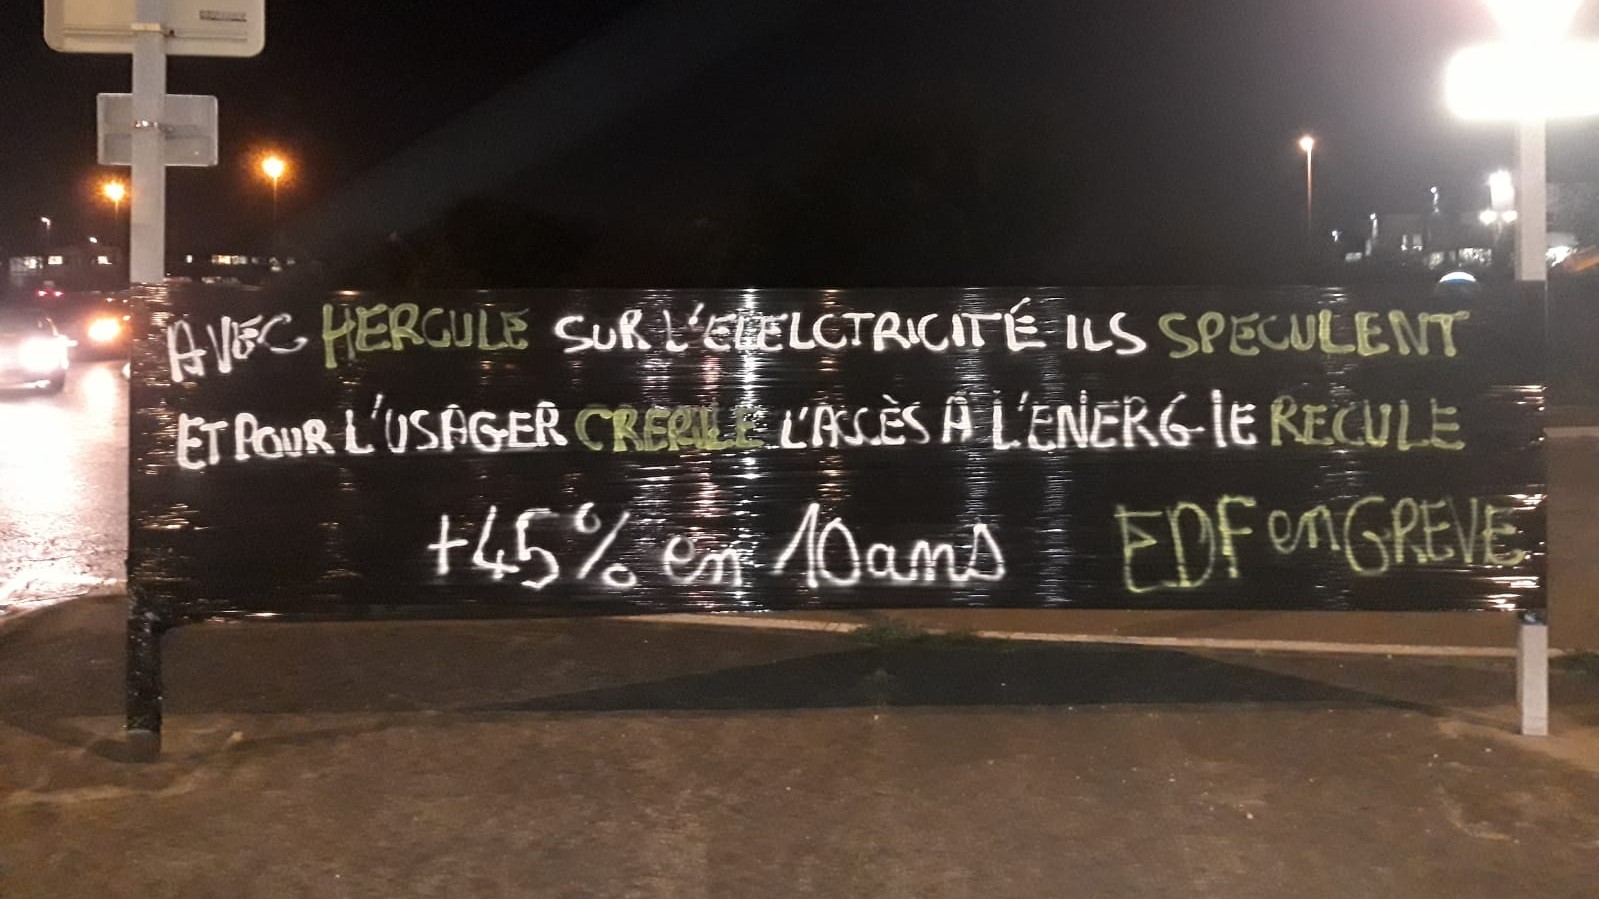 AVEC HERCULE SUR L'ELELCTRICITÉ ILS SPECULENT
ET POUR L'USAGER CREDULE L'ACCÈS A L'ENERGIE RECULE
+45% en 10 ans EDF en GREVE